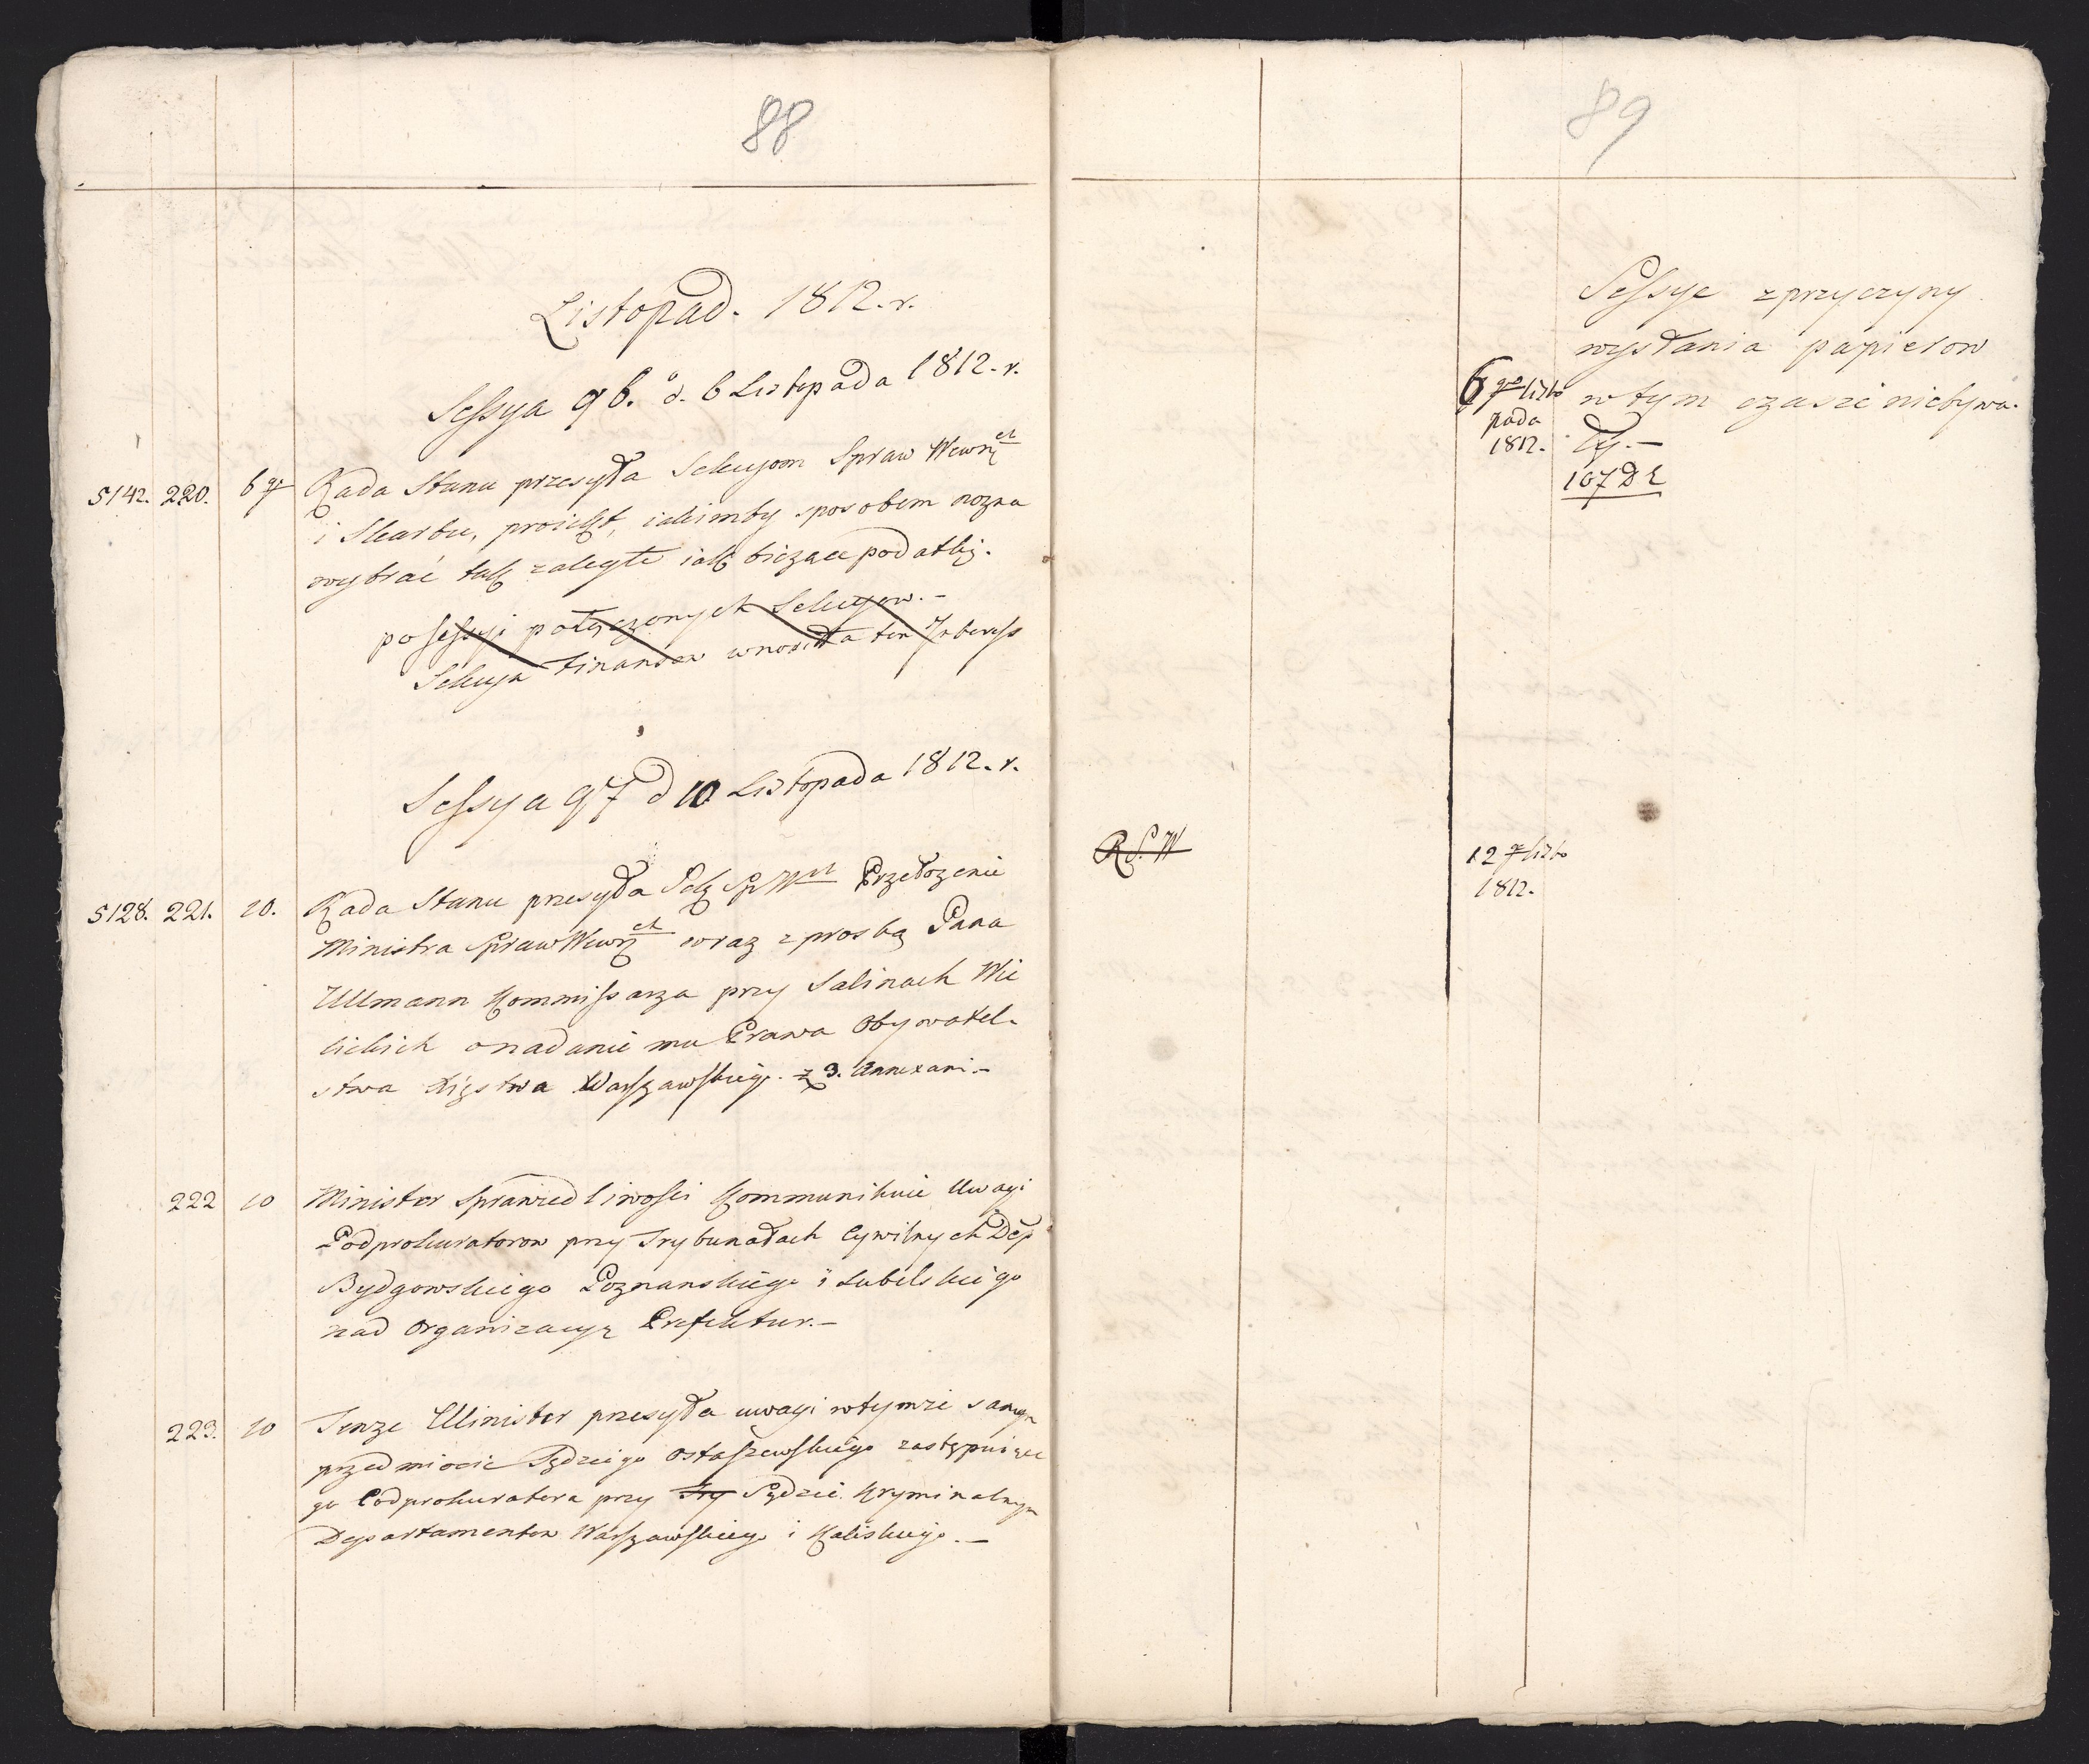 88
Listopad. 1812. r.
Sessya 96. d. 6 Listopada 1812. r.
5142. 220. 6 go Rada Stanu przesyła Sekcyom Spraw Wewn ch
i Skarbu, proiekt, iakimby sposobem można
wybrać tak zaległe iak bieżące podatki.
po sessyi połączonych Sekcyow.-
Sekcya Finansow wnosiła ten Interess
Sessya 97 d 10 Listopada 1812. r.
5128. 221. 10. Rada Stanu przesyła Sek Sp W ch Przełożenie
Ministra Spraw Wewn ch wraz z prosbą Pana
Ullmann Kommissarza przy Salinach Wie
lickich o nadanie mu Prawa Obywatel-
stwa Xięstwa Warszawskiego. z 3. Annexami.-
222 10 Minister Sprawiedliwosci Kommunikuie Uwagi
Podprokuratorow przy Trybunałach Cywilnych Dep
Bydgowskiego Poznanskiego i Lubelskiego
nad Organizacyą Prefektur.-
223. 10 Tenze Minister przesyła uwagi w tymze samym
przedmiocie Sędziego Ostaszewskiego zastępuiące
go Podprokuratora przy Try Sądzie Kryminalnym
Departamentow Warszawskiego i Kaliskiego.-
89
Sessye z przyczyny
wysłania papierow
w tym czasie niebywa-
ły.-
107 D E
6 go Listo
pada
1812.
R S. W
12 go Listo
1812.